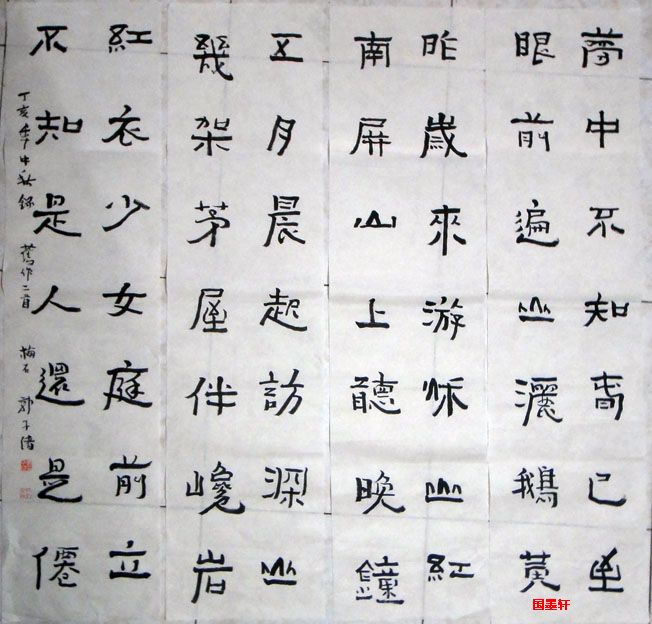 夢中不知春已
眼前遍山灑鵝黄
昨歲來游秋山紅
南屏山上聽晚鐘
五月晨起訪深山
幾架茅屋伴巉岩
紅衣少女庭前立
不知是人還是僊
丁亥年中秋錄 舊作二首 梅石 郭子绪
国墨轩